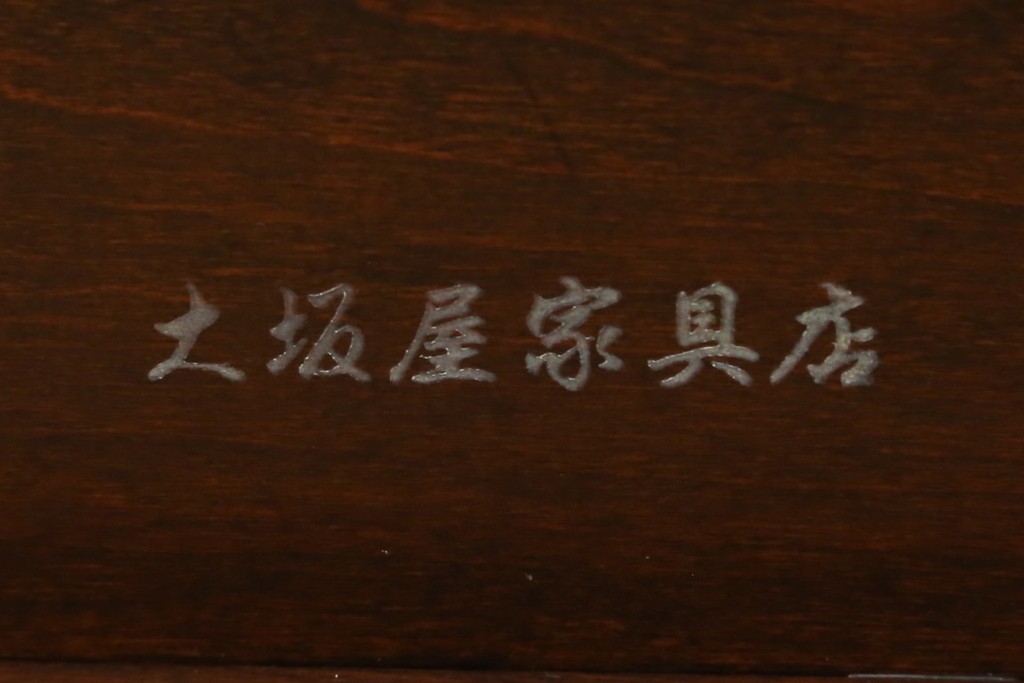 大坂屋家具店